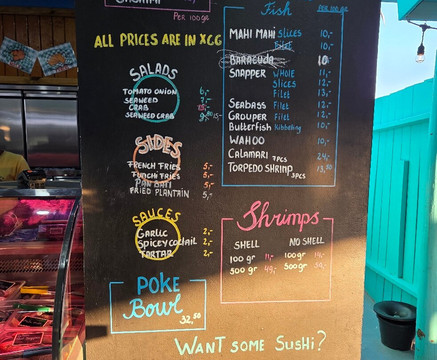 Per 100gr
ALL PRICES ARE IN XCG
SALADS
TOMATO ONION 6,-
SEAWEED 7,-
CRAB
SEAWEED CRAB
SIDES
FRENCH FRIES 5,-
FUNCHI FRIES 5,-
PAN BATI 5,-
FRIED PLANTAIN 5,-
SAUCES
GARLIC 2,-
SPICEY COCTAIL 2,-
TARTAR 2,-
POKE
Bowl
32,50
Fish Per 100 gr
MAHI MAHI Slices 10,-
Filet 10,-
BARACUDA 10
SNAPPER WHOLE 11,-
SLICES 12,-
Filet 13,-
SEABASS Filet 12,-
GROUPER Filet 12,-
ButterFish Kibbeling 10,-
WAHOO 10,-
CALAMARI 7PCS 24,-
TORPEDO SHRIMP 3PCS 13,50
Shrimps
SHELL NO SHELL
100 gr 11,- 100gr
500 gr 49,- 500gr
WANT SOME SUSHI?